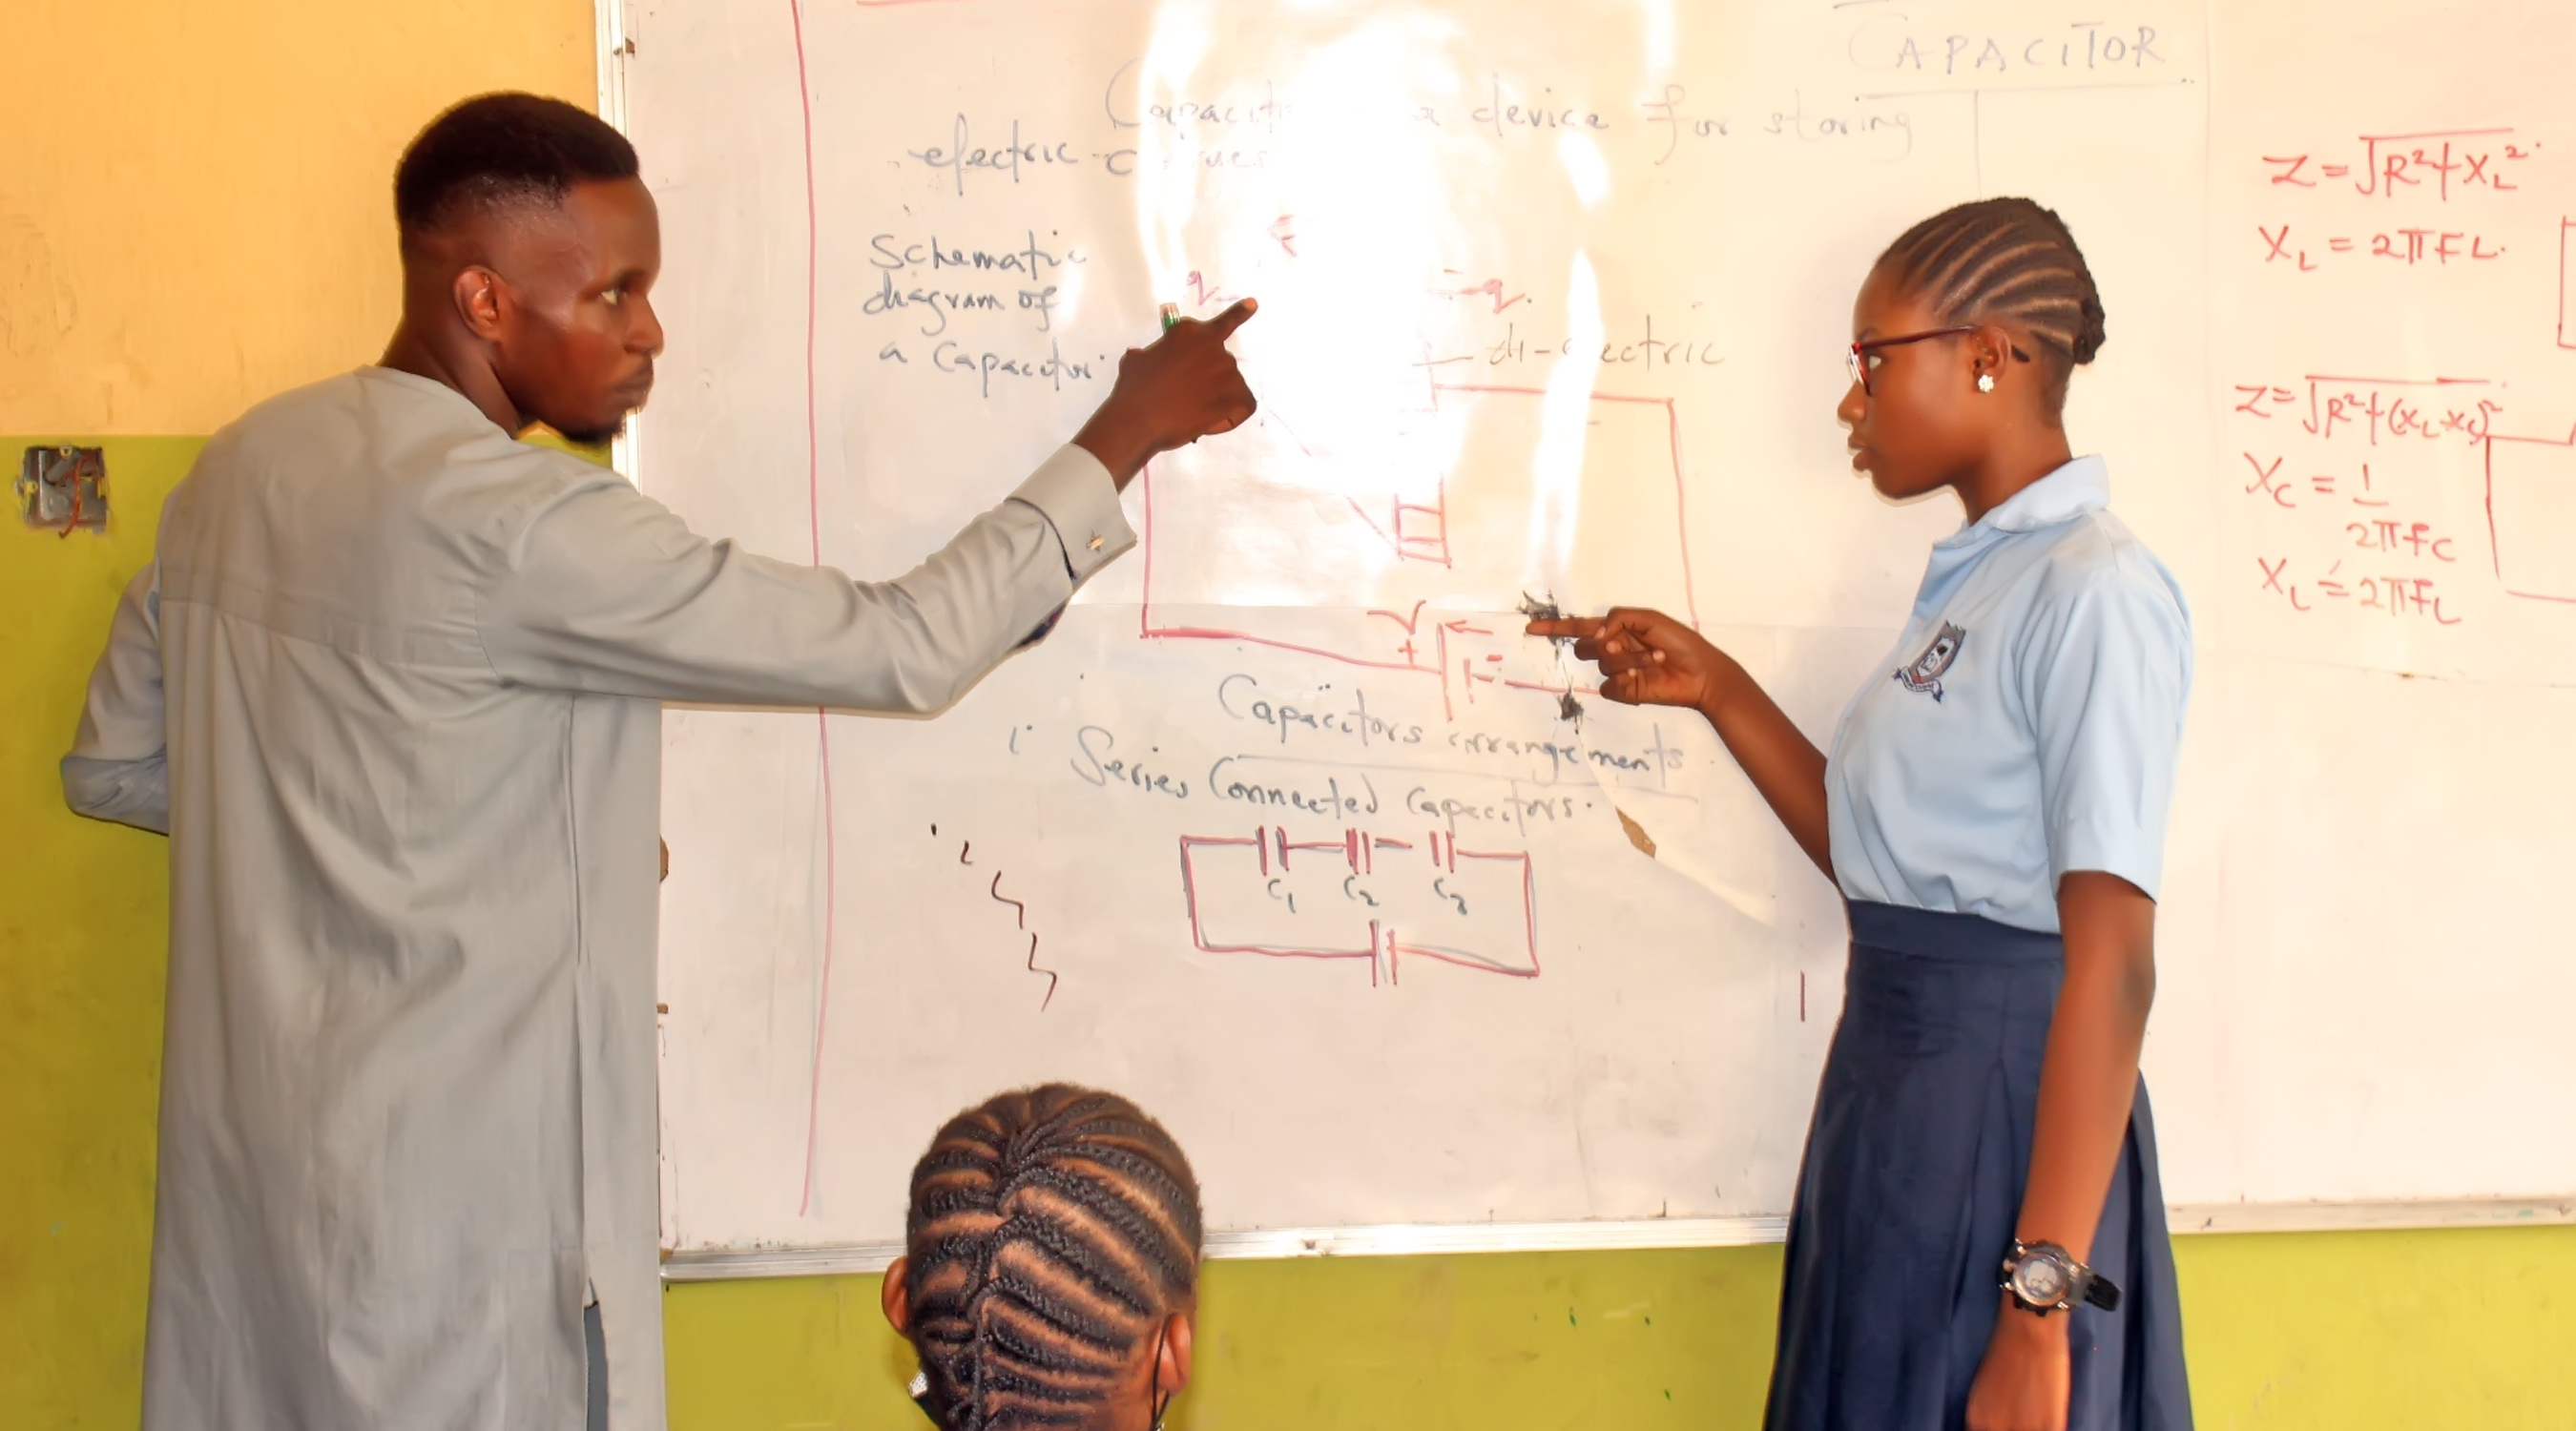 CAPACITOR
device for storing
electric
Schematic
diagram of
a Capacitor
q
-q.
V
+
-
Capacitors arrangements
i Series Connected Capacitors.
C₁ C₂ C₃
Z=√R²+X_L²
X_L = 2πFL.
Z=√R²+(X_L-X_C)²
X_C = 1/2πFC
X_L = 2πFL